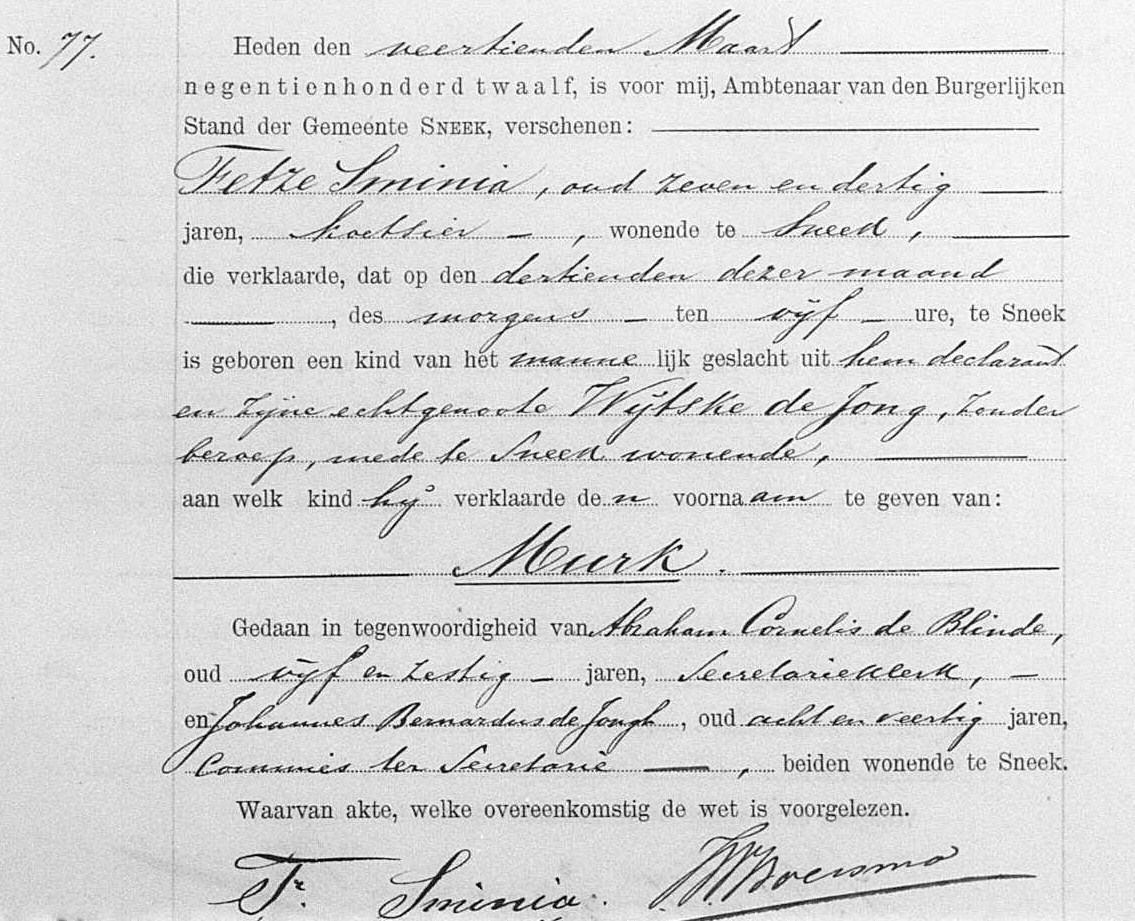 No. 77. Heden den veertienden Maart
negentienhonderd twaalf, is voor mij, Ambtenaar van den Burgerlijken
Stand der Gemeente SNEEK, verschenen:
Fetze Sminia, oud zeven en dertig
jaren, koetsier, wonende te Sneek,
die verklaarde, dat op den dertienden dezer maand
, des morgens ten vijf ure, te Sneek
is geboren een kind van het mannelijk geslacht uit hem declarant
en zijne echtgenoote Wijtske de Jong, zonder
beroep, mede te Sneek wonende,
aan welk kind hij verklaarde den voornaam te geven van:
Murk.
Gedaan in tegenwoordigheid van Abraham Cornelis de Blinde,
oud vijf en zestig jaren, Secretarieklerk,
en Johannes Bernardus de Jongh, oud acht en veertig jaren,
Commies ter Secretarie, beiden wonende te Sneek.
Waarvan akte, welke overeenkomstig de wet is voorgelezen.
Sminia.